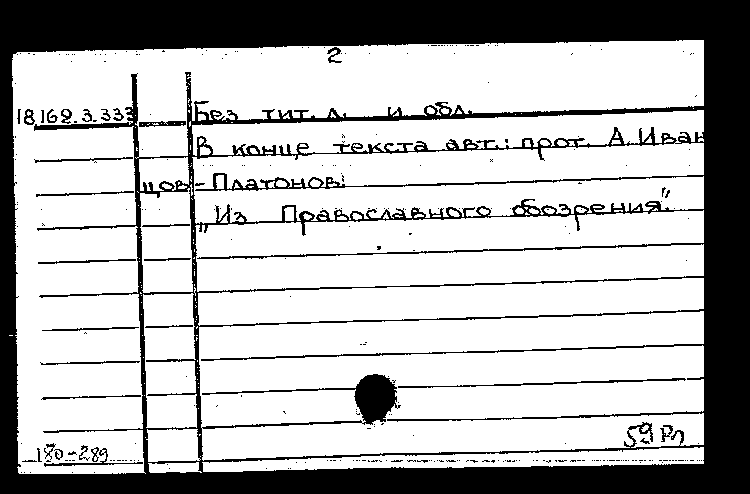 2
18.169.3.333 Без тит. л. и обл.
В конце текста авт.: прот. А. Иван
цов-Платонов.
„Из Православного обозрения".
180-289
59 Рл